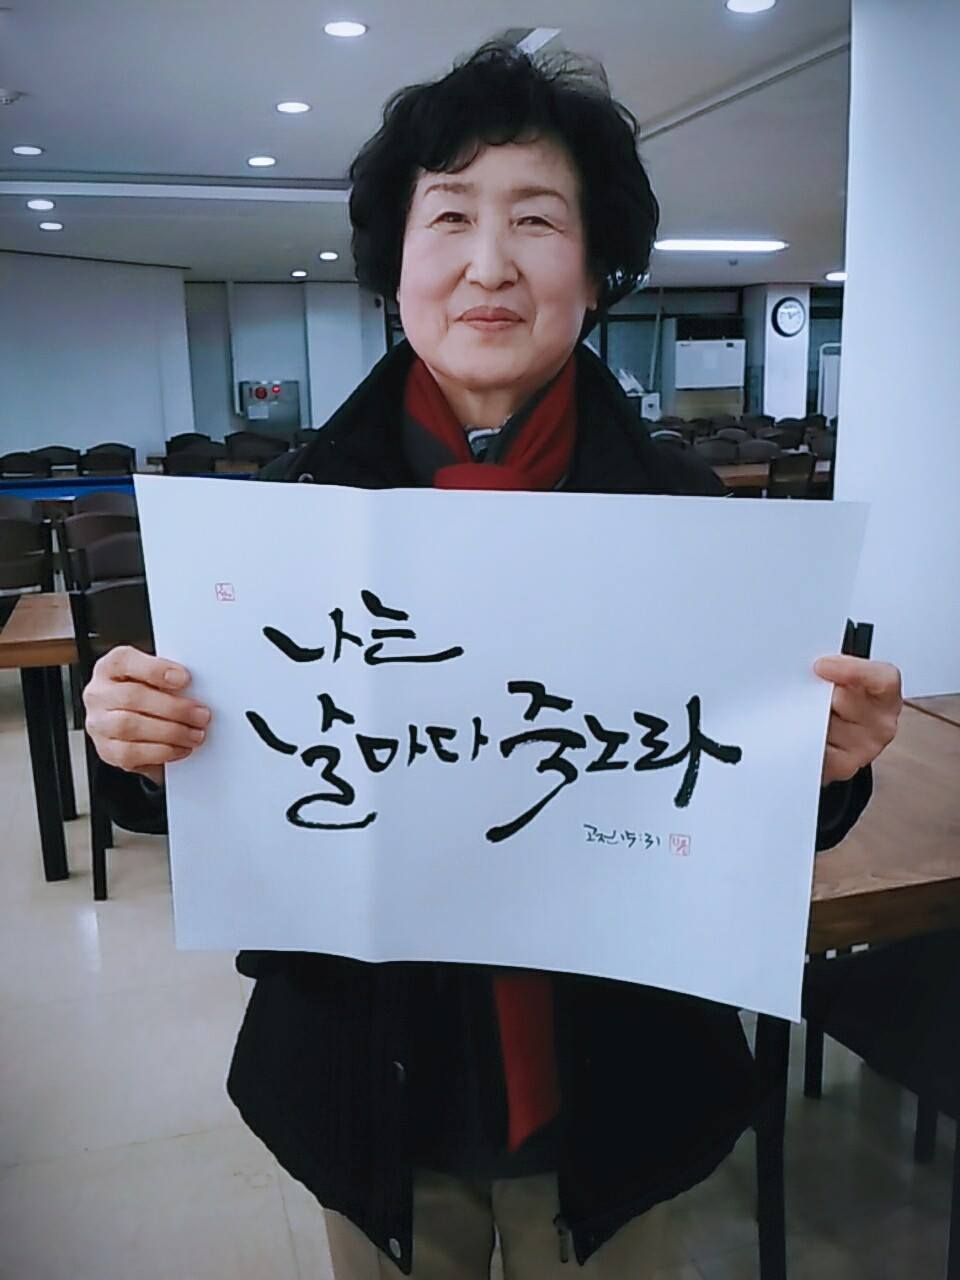 나는
날마다 죽노라
고전 15:31